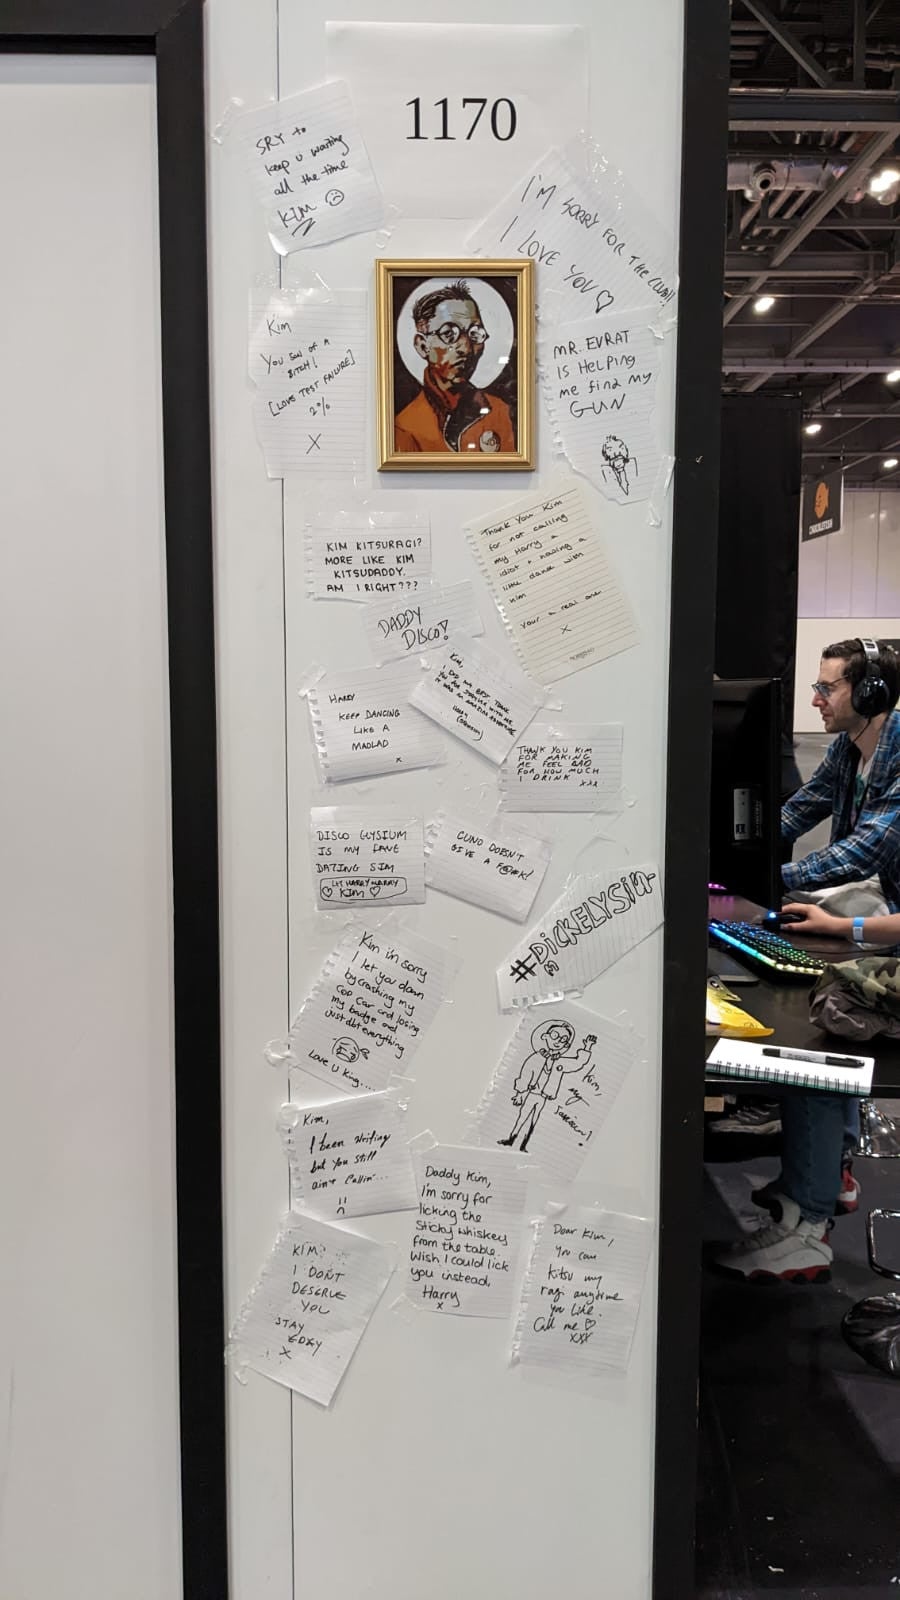 1170
SRY to
keep u waiting
all the time
KIM
I'M SORRY FOR THE CLUB!!
I LOVE YOU
Kim
You son of a
BITCH!
[LOVE TEST FAILURE]
2%
X
MR. EVRAT
IS HELPING
me find my
GUN
Thank You Kim
for not calling
my Harry a
idiot + having a
little dance with
him
your a real one
X
KIM KITSURAGI?
MORE LIKE KIM
KITSUDADDY.
AM I RIGHT???
DADDY
DISCO!
Kim,
HARRY
KEEP DANCING
LIKE A
MADLAD
x
THANK YOU KIM
FOR MAKING
ME FEEL BAD
FOR HOW MUCH
I DRINK
xxx
DISCO ELYSIUM
IS MY FAVE
DATING SIM
LET HARRY MARRY
KIM
CUNO DOESN'T
GIVE A F@#K!
#DICKELYSIUM
Kim i'm sorry
I let you down
by crashing my
cop car and losing
my badge and
just dbt everything
Love u king....
Kim,
my
Kim,
I been writing
but you still
ain't callin'...
Daddy Kim,
I'm sorry for
licking the
sticky whiskey
from the table.
Wish I could lick
you instead,
Harry
x
Dear Kim,
you can
Kitsu my
ragi anytime
you like.
Call me
xxx
KIM
I DON'T
DESERVE
YOU
STAY
EDGY
X